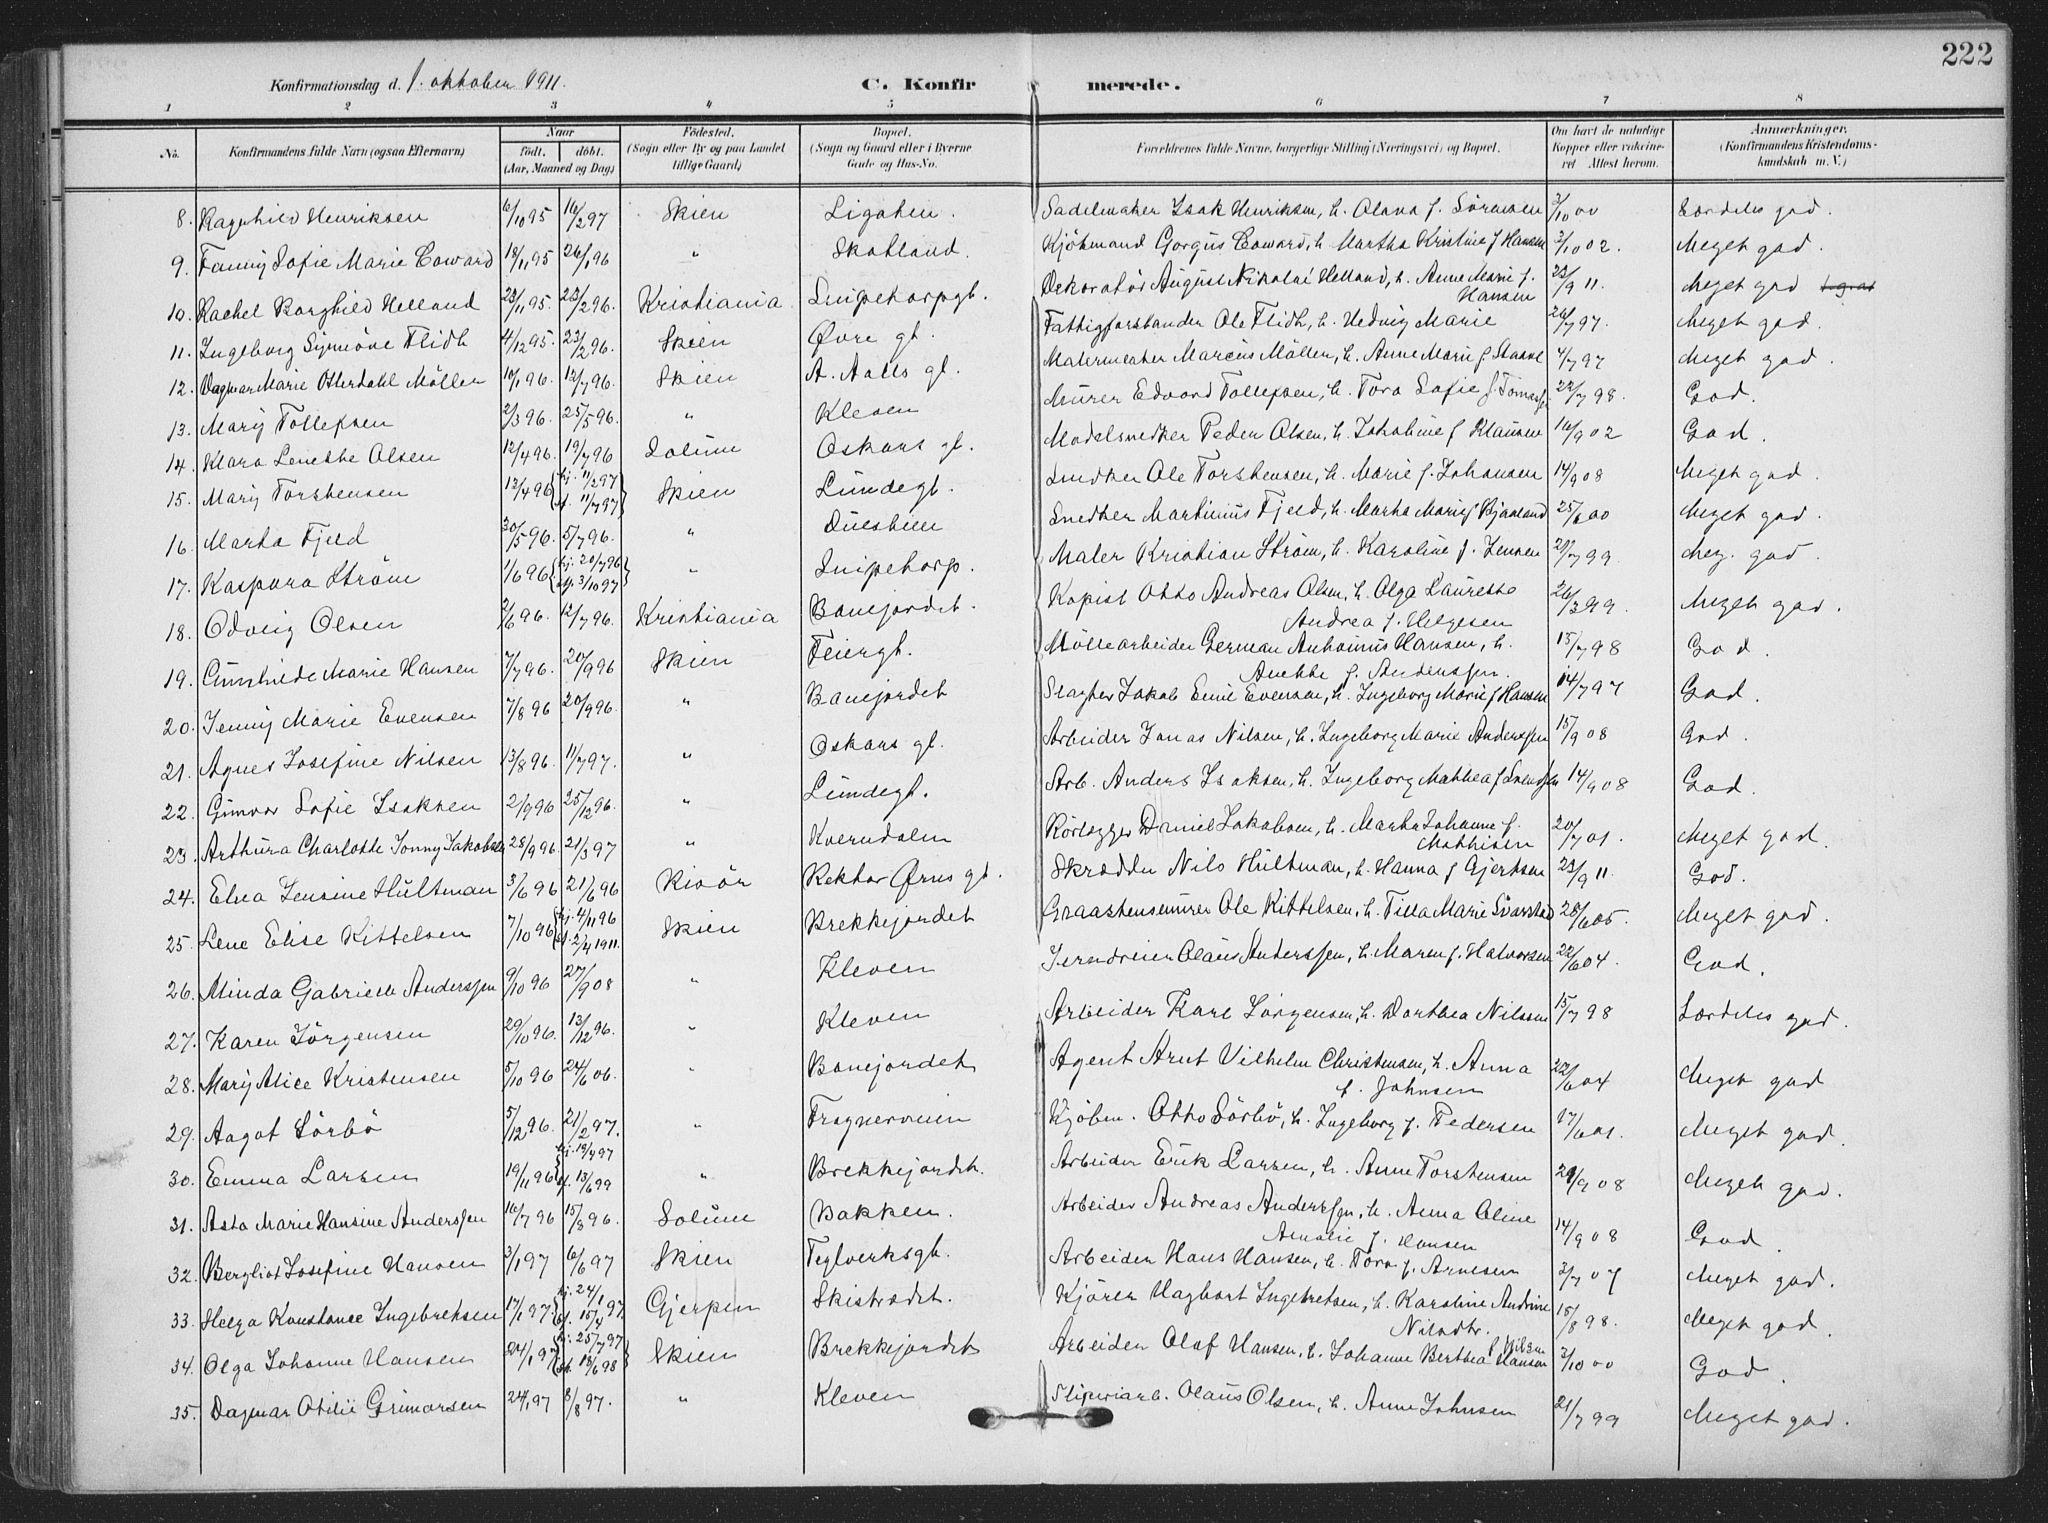 222
Konfirmationsdag d. 1. oktober 1911. C. Konfirmerede.
1 2 3 4 5 6 7 8
No. Konfirmandens fulde Navn (ogsaa Efternavn) Naar født. døbt. (Aar, Maaned og Dag) Fødested. (Sogn eller By og paa Landet tillige Gaard) Bopæl. (Sogn og Gaard eller i Byerne Gade og Hus-No. Forældrenes fulde Navne, borgerlige Stilling (Næringsvei) og Bopæl. Om havt de naturlige Kopper eller vakcineret Attest herom. Anmærkninger. (Konfirmandens Kristendomskundskab m. V.)
8. Ragnhild Henriksen 6/10 95 16/2 97 Skien Ligaten. Sadelmaker Isak Henriksen, h. Olava f. Sörensen 3/10 00 Særdeles god.
9. Fanny Sofie Marie Coward 18/11 95 26/1 96 " Skotland. Kjöbmand Gorgus Coward, h. Martha Kristine f Hansen 3/10 02. Meget god.
10. Rachel Borghild Helland 23/11 95. 23/2 96. Kristiania Snipetorpgt. Dekoratör August Nikolai Helland, h. Anne Marie f. Hansen 23/9 11. Meget god
11. Ingeborg Synnöve Flidh 4/12 95. 23/2 96. Skien Øvre gt. Fattigforstander Ole Flidh, h. Hedvig Marie 26/7 97. Meget god.
12. Dagmar Marie Otterdahl Möller 10/1 96. 12/7 96. Skien A. Aalls gt. Malermester Marcus Möller, h. Anne Marie f Staal 4/7 97 Meget god.
13. Mary Tollefsen 2/3 96. 25/5 96. " Kleven Murer Edvard Tollefsen, h. Tora Sofie f. 22/7 98. God.
14. Klara Lenette Olsen 12/4 96. 19/7 96 Solum Oskars gt. Modelsnedker Peder Olsen, h. Jakobine f Klausen 16/9 02 God.
15. Mary Torstensen 13/4 96 {hj. 11/2 97 st. 11/7 97} Skien Lundegt. Snedker Ole Torstensen, h. Marie f. Johansen 14/9 08 Meget god.
16. Marta Fjeld 30/5 96. 5/7 96. " Duestien Snedker Martinius Fjeld, h. Marta Marie f Bjaaland 25/6 00 Meget god.
17. Kaspara Ström 1/6 96 {hj. 20/7 96 st. 3/10 97} " Snipetorp. Maler Kristian Ström, h. Karoline f. Jensen 21/7 99 Meg. god.
18. Odveig Olsen 2/6 96. 12/7 96. Kristiania Banejordet. Kopist Otto Andreas Olsen, h. Olga Laurette Andrea f. Helgesen 26/3 99. Meget god.
19. Gunhilde Marie Hansen 7/7 96. 20/9 96 Skien Feiergt. Möllearbeider German Antonius Hansen, h. Anette f. Anderssen. 15/7 98 God.
20. Jenny Marie Evensen 7/8 96 20/9 96. " Banejordet Slagter Jakob Emil Evensen, h. Ingeborg Marie f Hansen 14/7 97 God.
21. Agnes Josefine Nilsen 13/8 96. 11/7 97. " Oskars gt. Arbeider Jonas Nilsen, h. Ingeborg Marie Anderssen 15/9 08 God.
22. Gunvor Sofie Isaksen 2/9 96 25/12 96. " Lundegt. Arb. Anders Isaksen, h. Ingeborg Mathea f Svendsen 14/9 08 God.
23. Arthura Charlotte Jonny Jakobsen 28/9 96. 21/3 97 " Kverndalen Rörlægger Daniel Jakobsen, h. Marta Johanne f. Mathisen 20/7 01. Meget god.
24. Elna Jensine Hultman 3/6 96 21/6 96 Risör Rektor Ørns gt. Skrædder Nils Hultman, h. Hanna f Gjertsen 23/9 11. God.
25. Lene Elise Kittelsen 7/10 96 {hj. 4/11 96 st. 2/4 1911. Skien Brekkejordet Graastensmurer Ole Kittelsen, h. Tilla Marie Svarstad 28/6 05. Meget god.
26. Minda Gabrielle Anderssen 9/10 96 27/9 08 " Kleven Jerndreier Olaus Anderssen, h. Maren f. Halvorsen 22/6 04. God.
27. Karen Jörgensen 29/10 96. 13/12 96. " Kleven Arbeider Karl Jörgensen, h. Dorthea Nilssen 15/7 98 Særdeles god.
28. Mary Alice Kristensen 5/10 96 24/6 06. " Banejordet Agent Arnt Vilhelm Christensen, h. Anna f. Johnsen 22/6 04 Meget god
29. Aagot Sörbö 5/12 96. 21/2 97. " Frognerveien Kjöbm. Otto Sörbö, h. Ingeborg f. Pedersen 17/6 01. Meget god.
30. Emma Larsen 19/11 96 {hj. 19/4 97 st. 13/6 99 " Brekkejordet. Arbeider Erik Larsen, h. Anne Torstensen 21/9 08 Meget god.
31. Asta Marie Hansine Anderssen 16/7 96 15/8 96. Solum Bakken. Arbeider Andreas Anderssen, h. Anna Oline Amalie f. Hansen 14/9 08 God.
32. Bergliot Josefine Hansen 3/1 97 6/6 97 Skien Teglverksgt. Arbeider Hans Hansen, h. Tora f. Arnesen 3/7 07 Meget god.
33. Helga Konstance Ingebretsen 17/1 97 {hj. 24/1 st. 15/4 97 Gjerpen Skistrædet. Kjörer Hagbart Ingebretsen, h. Karoline Andrine Nilsdtr. 15/8 98. Meget god.
34. Olga Johanne Hansen 24/1 97 {hj. 25/7 97 st. 13/6 98} Skien Brekkejordet Arbeider Olaf Hansen, h. Johanne Berthea Hansen f Nilsen 3/10 00 God.
35. Dagmar Otilie Grimarsen 24/1 97 8/8 97. " Kleven Sliperiarb. Olaus Olsen, h. Anne Johnsen 21/7 99 Meget god.